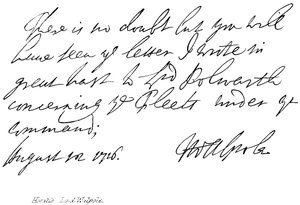 There is no doubt but you will
have seen ye letter I wrote in
great hast to Lrd Polwarth
concerning ye fleets under ye
command;
August 1716.
H Walpole.
Horatio Lord Walpole